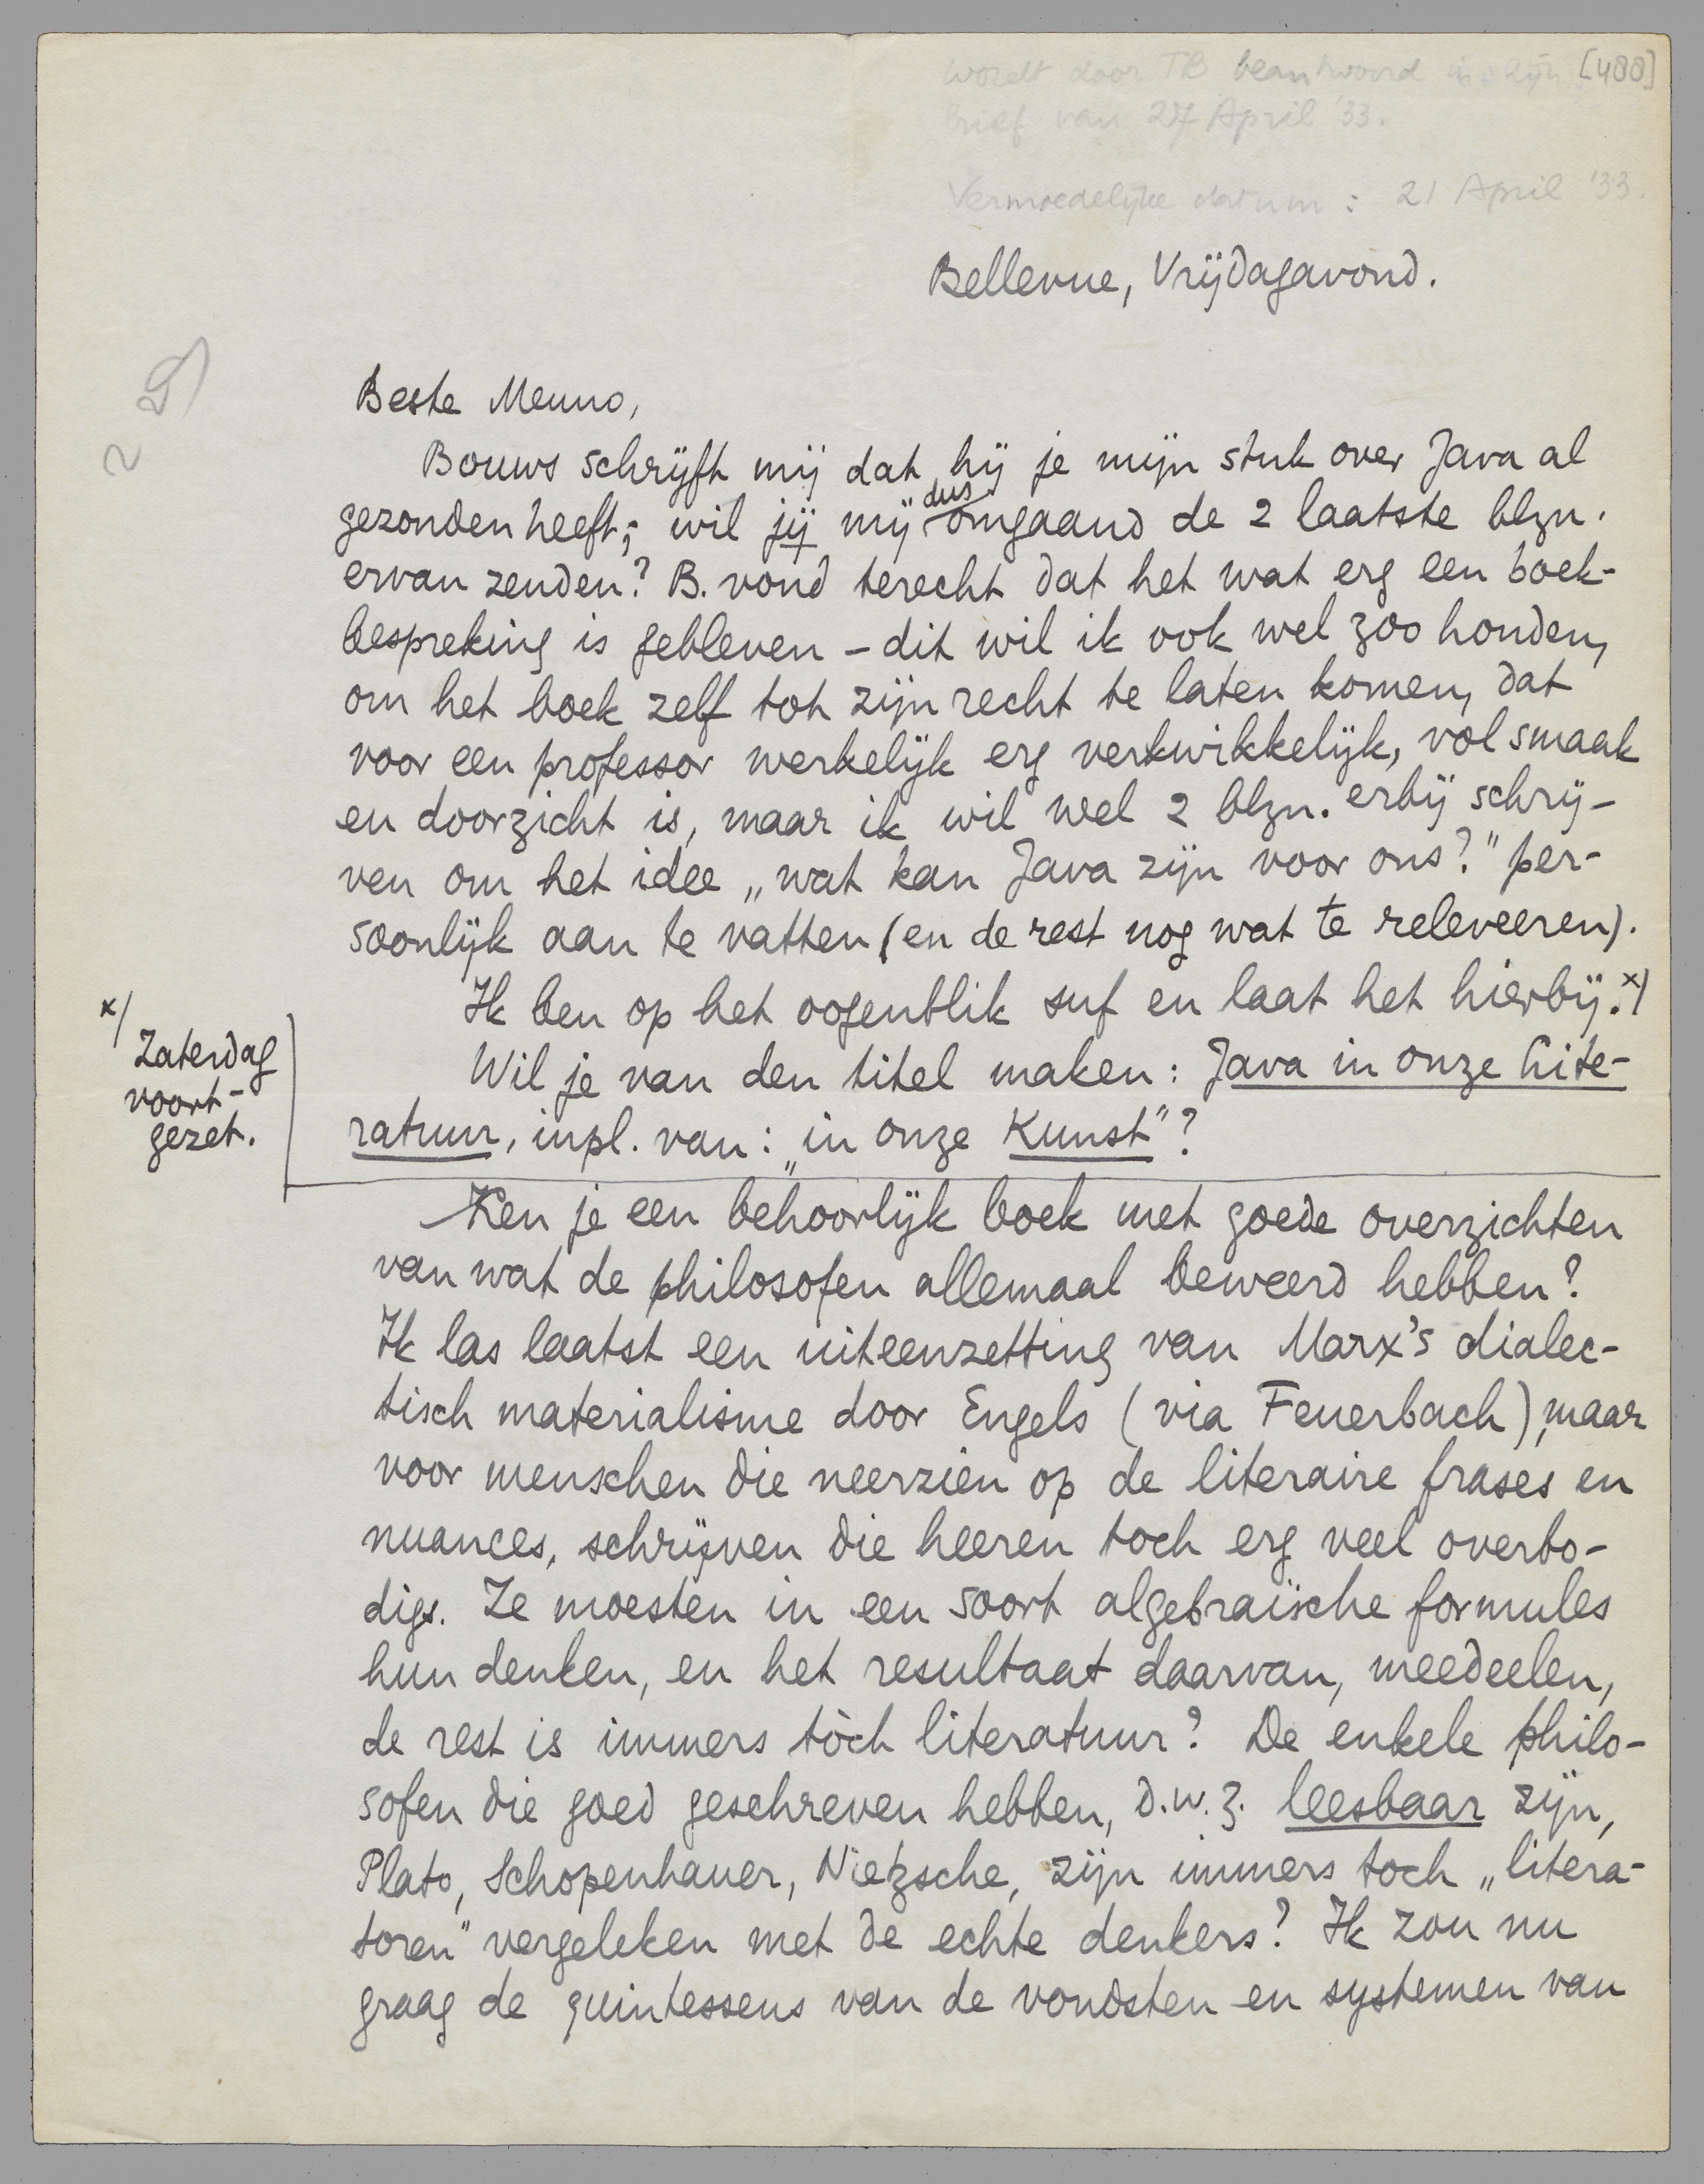 wordt door TB beantwoord in zijn [488]
brief van 27 April '33.
Vermoedelijke datum: 21 April '33.
Bellevue, Vrijdagavond.
Beste Menno,
Bouws schrijft mij dat hij je mijn stuk over Java al
gezonden heeft; wil jij mij dus omgaand de 2 laatste blzn.
ervan zenden? B. vond terecht dat het wat erg een boek-
bespreking is gebleven – dit wil ik ook wel zoo houden,
om het boek zelf tot zijn recht te laten komen, dat
voor een professor werkelijk erg verkwikkelijk, vol smaak
en doorzicht is, maar ik wil wel 2 blzn. erbij schrij-
ven om het idee „wat kan Java zijn voor ons?" per-
soonlijk aan te vatten (en de rest nog wat te releveeren).
Ik ben op het oogenblik suf en laat het hierbij. x/
x/ Zaterdag
voort-
gezet.
Wil je van den titel maken: Java in onze Lite-
ratuur, inpl. van: „in onze Kunst"?
Ken je een behoorlijk boek met goede overzichten
van wat de philosofen allemaal beweerd hebben?
Ik las laatst een uiteenzetting van Marx's dialec-
tisch materialisme door Engels (via Feuerbach), maar
voor menschen die neerzien op de literaire frases en
nuances, schrijven die heeren toch erg veel overbo-
digs. Ze moesten in een soort algebraïsche formules
hun denken, en het resultaat daarvan, meedeelen,
de rest is immers tòch literatuur? De enkele philo-
sofen die goed geschreven hebben, d.w.z. leesbaar zijn,
Plato, Schopenhauer, Nietzsche, zijn immers toch „litera-
toren" vergeleken met de echte denkers? Ik zou nu
graag de quintessens van de vondsten en systemen van